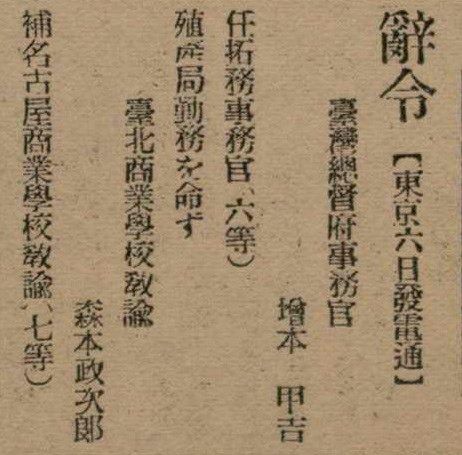 辭令【東京六日發電通】
臺灣總督府事務官
增本 甲吉
任拓務事務官(六等)
殖產局勤務を命ず
臺北商業學校教諭
森本政次郎
補名古屋商業學校教諭(七等)